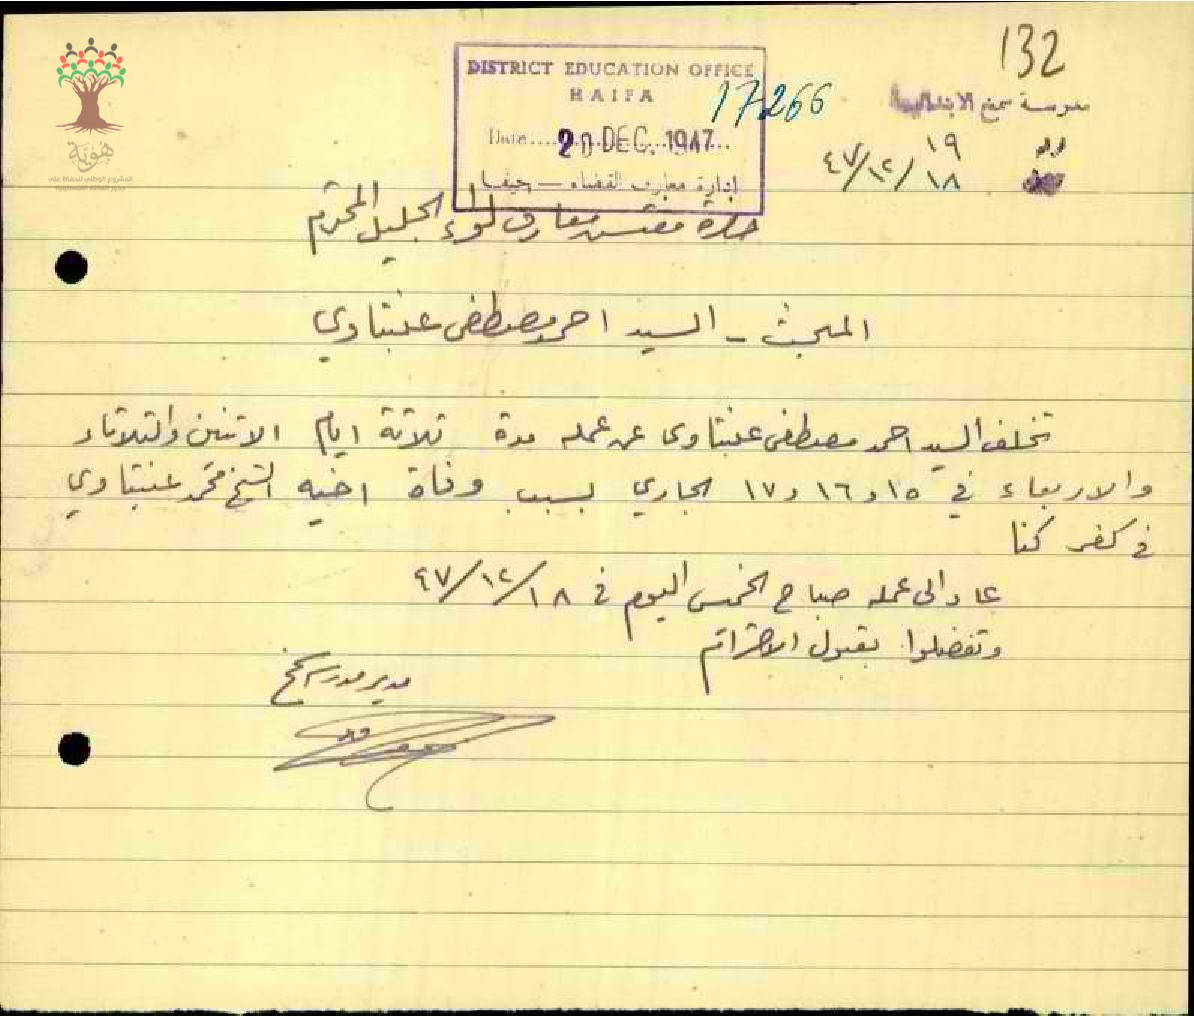 132
DISTRICT EDUCATION OFFICE
HAIFA
17266
Date.... 20 DEC. 1947...
إدارة معارف القضاء — حيفا
مدرسة سمخ الابتدائية
١٩
٤٧/١٢/١٨
هوية
المشروع الوطني للحفاظ على
جذور العائلة الفلسطينية
حضرة مفتش معارف لواء الجليل المحترم
المبحث - السيد احمد مصطفى عنبتاوي
تخلف السيد احمد مصطفى عنبتاوي عن عمله مدة ثلاثة ايام الاثنين والثلاثاء
والاربعاء في ١٥ و ١٦ و ١٧ الجاري بسبب وفاة اخيه الشيخ محمد عنبتاوي
في كفر كنا
عاد الى عمله صباح الخميس اليوم في ٤٧/١٢/١٨
وتفضلوا بقبول الاحترام
مدير مدرسة سمخ